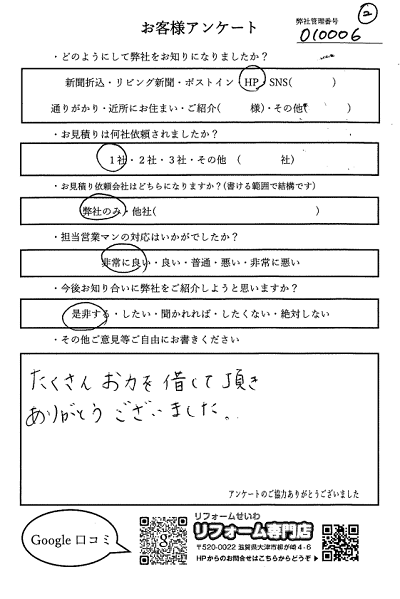 ②
お客様アンケート
弊社管理番号
010006
・どのようにして弊社をお知りになりましたか？
新聞折込・リビング新聞・ポストイン・HP・SNS(　　　)
通りがかり・近所にお住まい・ご紹介(　　　様)・その他(　　　)
・お見積りは何社依頼されましたか？
1社・2社・3社・その他 (　　　社)
・お見積り依頼会社はどちらになりますか？(書ける範囲で結構です)
弊社のみ・他社(　　　)
・担当営業マンの対応はいかがでしたか？
非常に良い・良い・普通・悪い・非常に悪い
・今後お知り合いに弊社をご紹介しようと思いますか？
是非する・したい・聞かれれば・したくない・絶対しない
・その他ご意見等ご自由にお書きください
たくさんお力を借して頂き
ありがとうございました。
アンケートのご協力ありがとうございました
Google 口コミ
g
リフォームせいわ
リフォーム専門店
〒520-0022 滋賀県大津市柳が崎4-6
HPからのお問合せはこちらからどうぞ▶